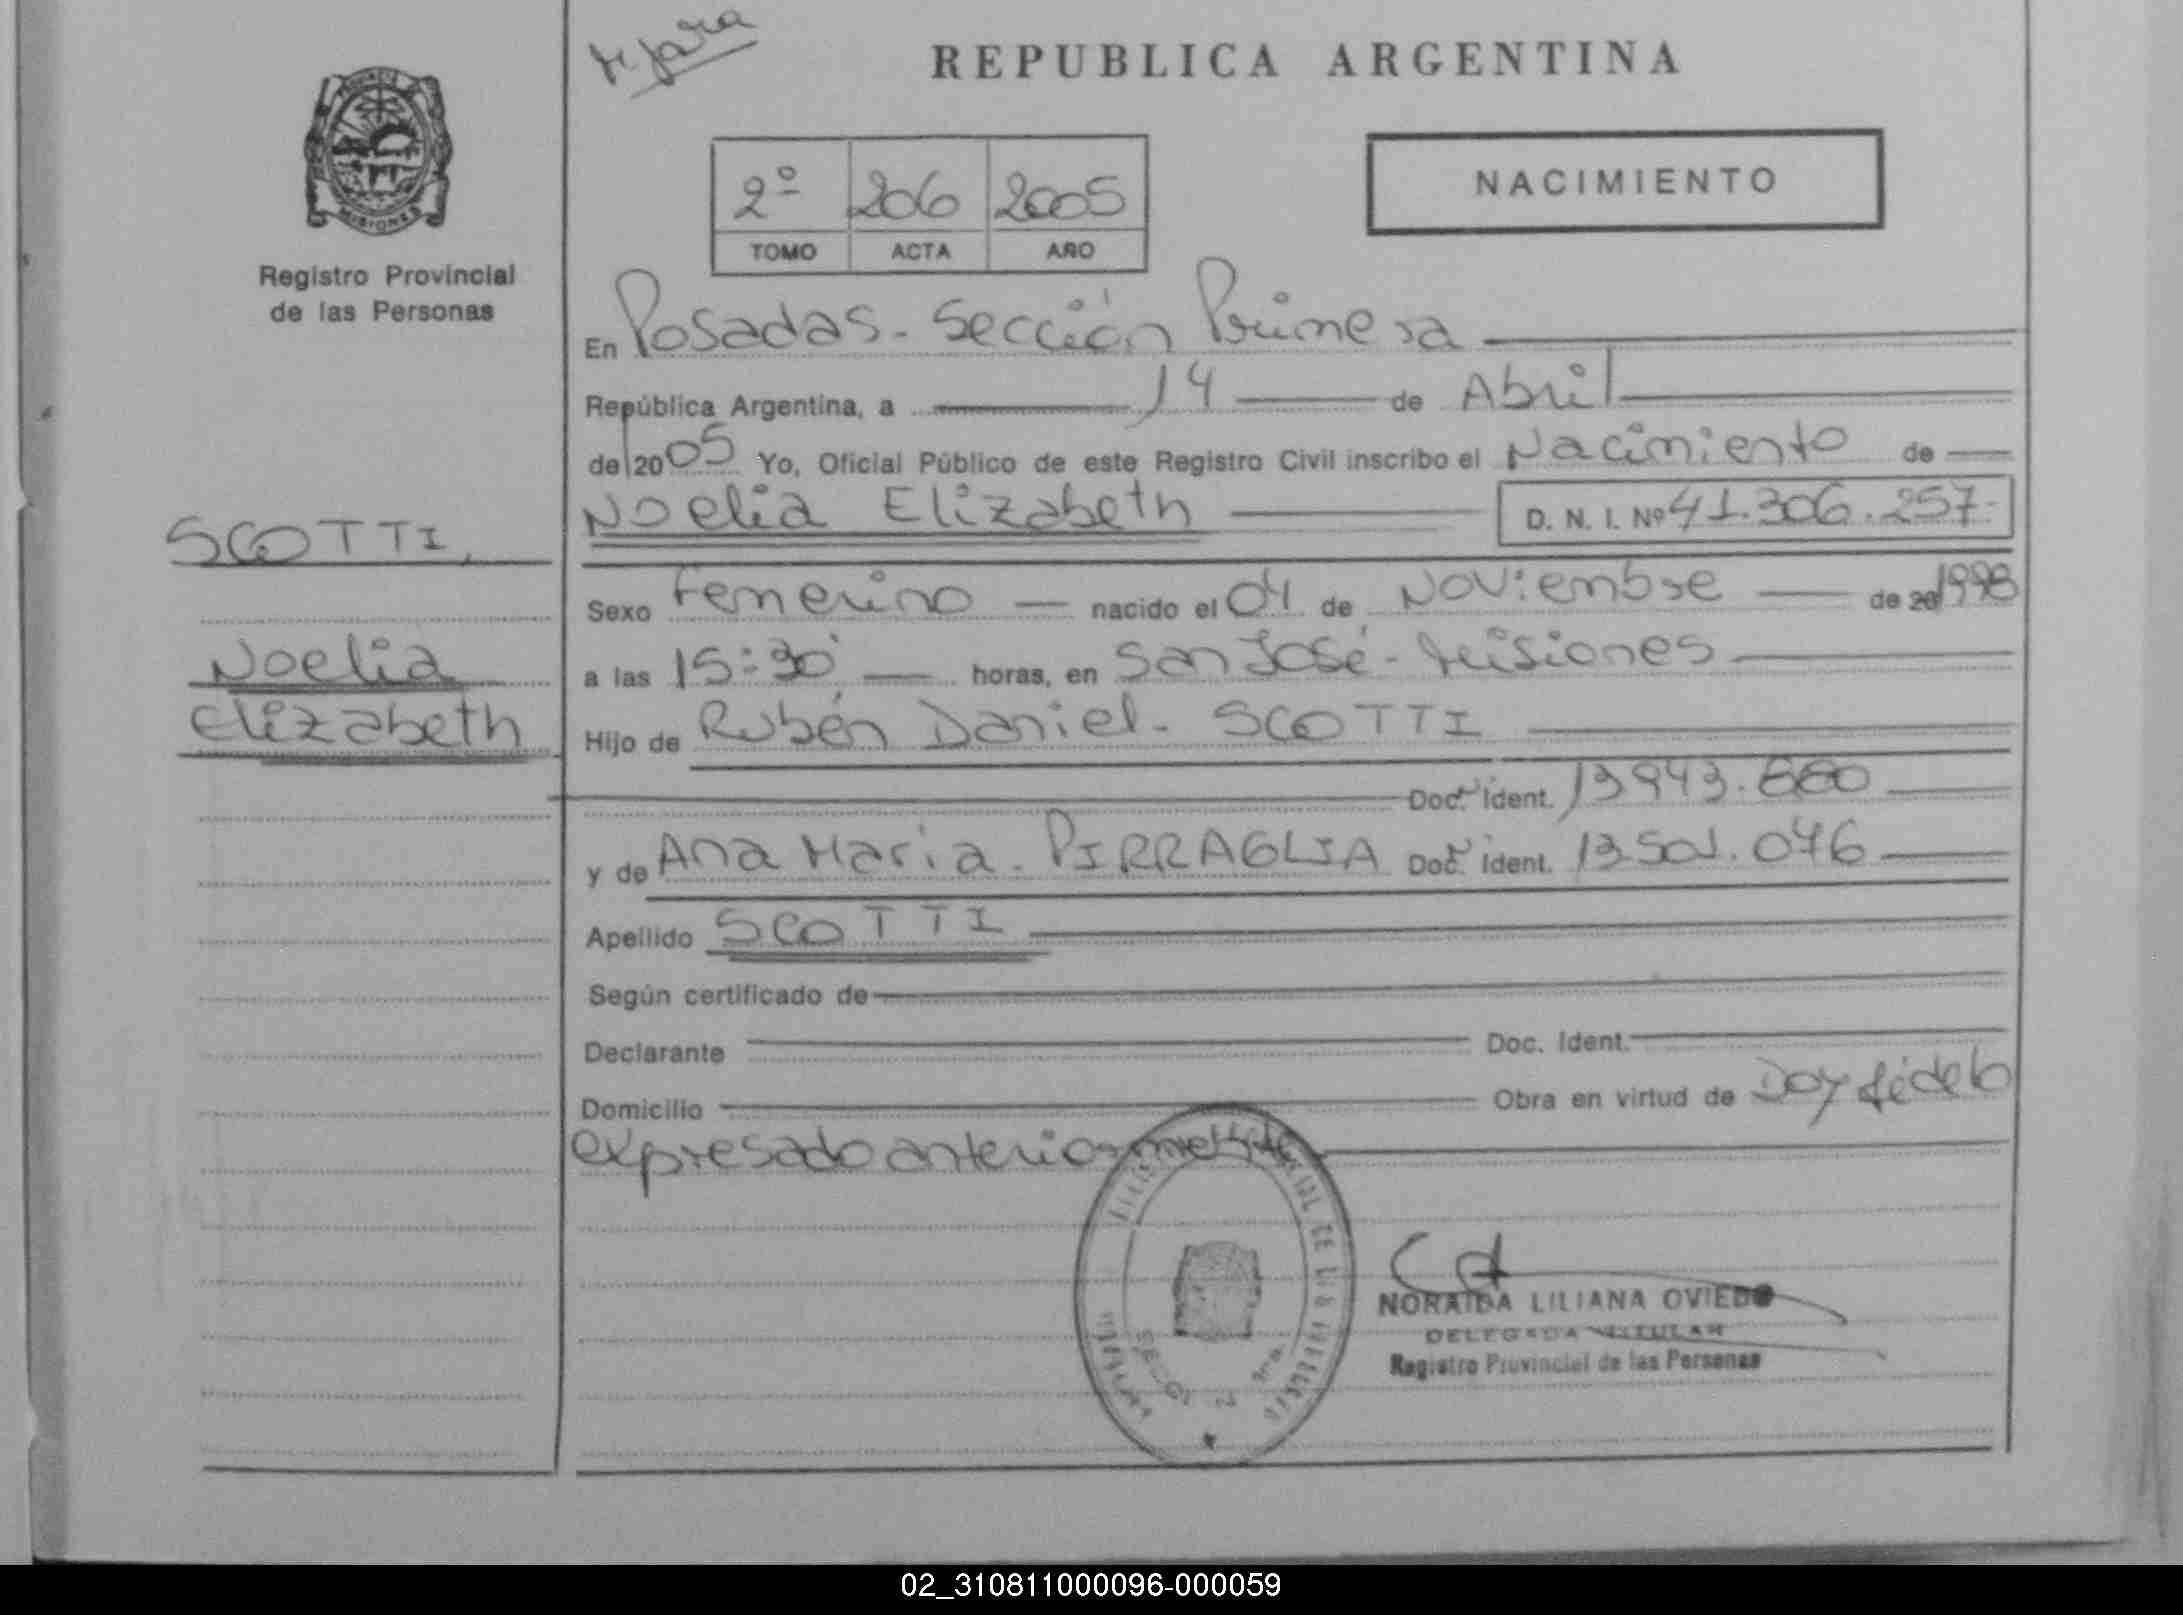 M. Jara
REPUBLICA ARGENTINA
MISIONES
Registro Provincial
de las Personas
2º 206 2005
TOMO ACTA AÑO
NACIMIENTO
En Posadas - Sección Primera
República Argentina, a 14 de Abril
de 2005 Yo, Oficial Público de este Registro Civil inscribo el Nacimiento de
Noelia Elizabeth D. N. I. Nº 41.306.257-
SCOTTI,
Noelia
Elizabeth
Sexo Femenino nacido el 04 de Noviembre de 20 1998
a las 15:30 horas, en San José - Misiones
Hijo de Rubén Daniel - SCOTTI
Doc. Ident. 13943.660
y de Ana María - PIRRAGLIA Doc. Ident. 13501.046
Apellido SCOTTI
Según certificado de
Declarante Doc. Ident.
Domicilio Obra en virtud de Doy fé de lo
expresado anteriormente
NORAIDA LILIANA OVIEDO
DELEGADA TITULAR
Registro Provincial de las Personas
02_310811000096-000059